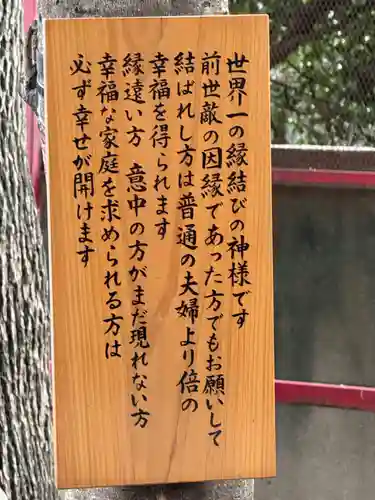 世界一の縁結びの神様です
前世敵の因縁であった方でもお願いして
結ばれし方は普通の夫婦より倍の
幸福を得られます
縁遠い方 意中の方がまだ現れない方
幸福な家庭を求められる方は
必ず幸せが開けます